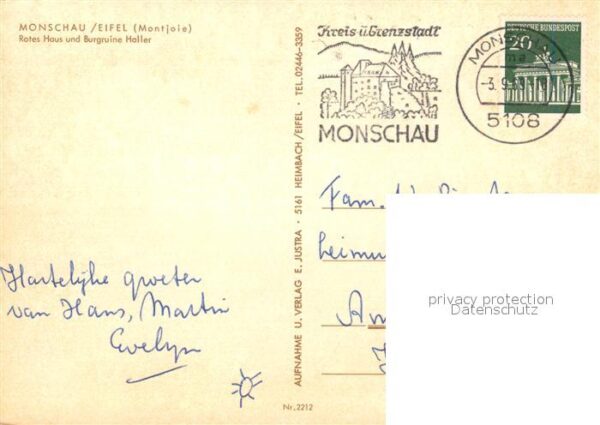 MONSCHAU /EIFEL (Montjoie)
Rotes Haus und Burgruine Haller
Kreis u. Grenzstadt
MONSCHAU
DEUTSCHE BUNDESPOST
20
MON
5108
AUFNAHME U. VERLAG E. JUSTRA · 5161 HEIMBACH/EIFEL · TEL. 02446-3359
Hartelijke groeten
van Hans, Martin
Evelyn
Fam.
privacy protection
Datenschutz
Nr. 2212